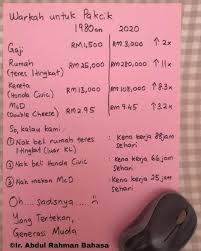 Warkah untuk Pakcik
1980an 2020
Gaji RM1,500 RM 3,000 ↑ 2x
Rumah RM25,000 RM280,000 ↑ 11x
(teres 1 tingkat)
Kereta RM13,000 RM108,000 ↑ 8.3x
(Honda Civic)
McD RM2.95 RM 9.45 ↑ 3.2x
(Double Cheese)
So, kalau kami :
① Nak beli rumah teres : Kena kerja 88jam
1 tingkat (luar KL) sehari
② Nak beli Honda Civic : Kena kerja 66jam
sehari
③ Nak makan McD : Kena kerja 25jam
sehari
Oh.... sadisnya....
Yang Tertekan,
Generasi Muda
©Ir. Abdul Rahman Bahasa